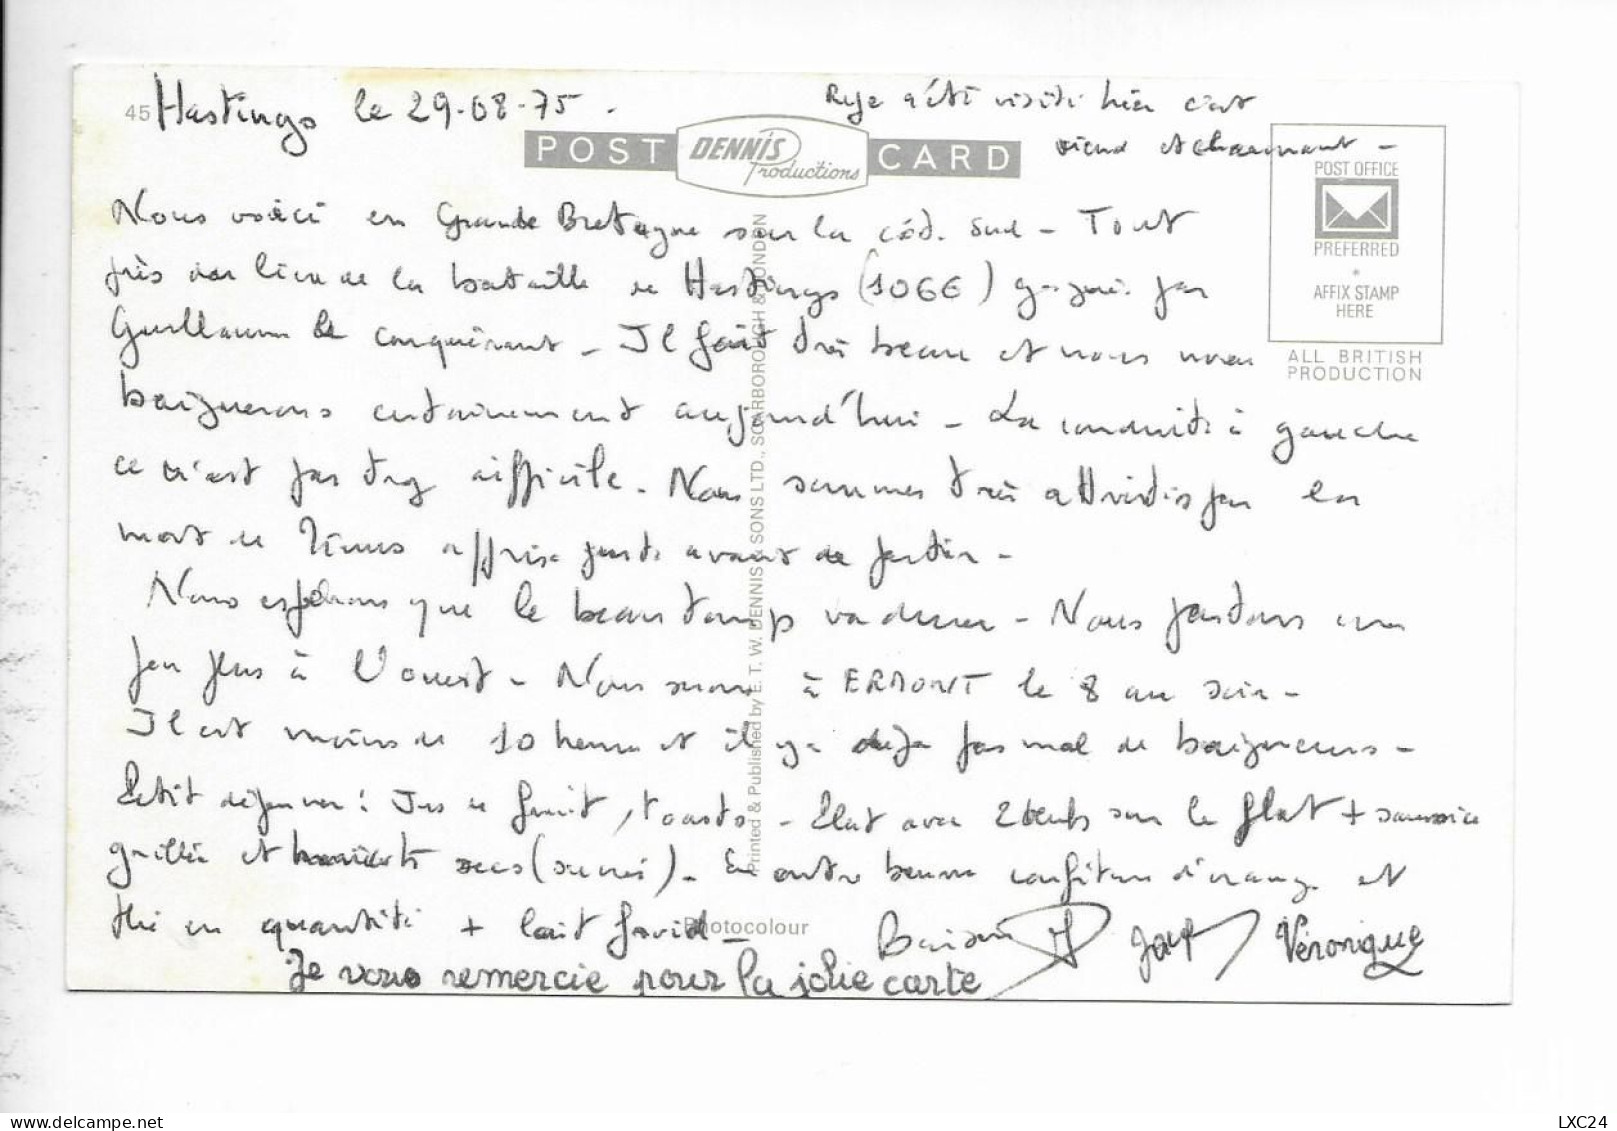 45 Hastings le 29-08-75.
Rye a été visité hier c'est
vieux et charmant -
POST DENNIS Productions CARD
POST OFFICE
PREFERRED
AFFIX STAMP
HERE
ALL BRITISH
PRODUCTION
Nous voici en Grande Bretagne sur la côte sud - Tout
près du lieu de la bataille de Hastings (1066) gagnée par
Guillaume le conquérant - Il fait très beau et nous nous
baignerons certainement aujourd'hui - La conduite à gauche
ce n'est pas trop difficile. Nous sommes très attristés par la
mort de apprise juste avant de partir -
Nous espérons que le beau temps va durer - Nous partons un
peu plus à l'ouest - Nous serons à ERMONT le 8 au soir -
Il est moins de 10 heures et il y a déjà pas mal de baigneurs -
Petit déjeuner : Jus de fruit, toasts - Plat avec 2 œufs sur le plat + saucisse
grillée et secs (sucrés). En outre bonne confiture d'orange et
thé en quantité + lait froid -
Baisers Jacq Véronique
Je vous remercie pour la jolie carte
Printed & Published by E. T. W. DENNIS & SONS LTD., SCARBOROUGH & LONDON
Photocolour
delcampe.net
LXC24